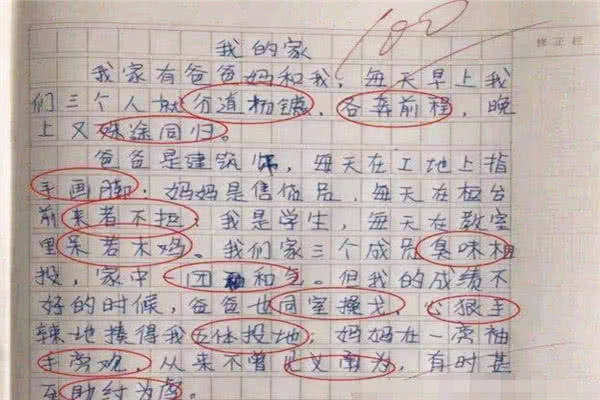 100
修正栏
我的家
我家有爸爸妈和我，每天早上我
们三个人就分道扬镳，各奔前程，晚
上又殊途同归。
爸爸是建筑师，每天在工地上指
手画脚，妈妈是售货员，每天在柜台
前来者不拒，我是学生，每天在教室
里呆若木鸡。我们家三个成员臭味相
投，家中一团和气。但我的成绩不
好的时候，爸爸也同室操戈，心狠手
辣地揍得我五体投地；妈妈在一旁袖
手旁观，从来不曾见义勇为，有时甚
至助纣为虐。